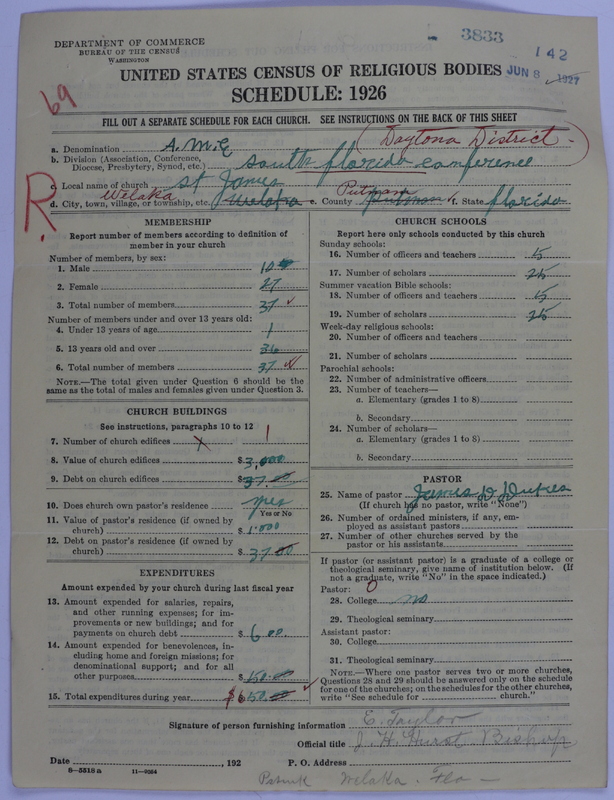 3833
142
JUN 8 1927
69
R.
DEPARTMENT OF COMMERCE
BUREAU OF THE CENSUS
WASHINGTON
UNITED STATES CENSUS OF RELIGIOUS BODIES
SCHEDULE: 1926
FILL OUT A SEPARATE SCHEDULE FOR EACH CHURCH. SEE INSTRUCTIONS ON THE BACK OF THIS SHEET
a. Denomination A.M.E
Daytona District
b. Division (Association, Conference, Diocese, Presbytery, Synod, etc.) south florida conference
c. Local name of church st James
Welaka Putnam
d. City, town, village, or township, etc. Welaka e. County Putman f. State florida
MEMBERSHIP
Report number of members according to definition of
member in your church
Number of members, by sex:
1. Male 10
2. Female 27
3. Total number of members 37
Number of members under and over 13 years old:
4. Under 13 years of age 1
5. 13 years old and over 36
6. Total number of members 37
NOTE.—The total given under Question 6 should be the
same as the total of males and females given under Question 3.
CHURCH BUILDINGS
See instructions, paragraphs 10 to 12
7. Number of church edifices X 1
8. Value of church edifices $3,000
9. Debt on church edifices $37.00
10. Does church own pastor's residence yes
Yes or No
11. Value of pastor's residence (if owned by
church) $1.000
12. Debt on pastor's residence (if owned by
church) $37.00
EXPENDITURES
Amount expended by your church during last fiscal year
13. Amount expended for salaries, repairs,
and other running expenses; for im-
provements or new buildings; and for
payments on church debt $6 00.
14. Amount expended for benevolences, in-
cluding home and foreign missions; for
denominational support; and for all
other purposes $150.00
15. Total expenditures during year $650.00
CHURCH SCHOOLS
Report here only schools conducted by this church
Sunday schools:
16. Number of officers and teachers 5
17. Number of scholars 25
Summer vacation Bible schools:
18. Number of officers and teachers 5
19. Number of scholars 25
Week-day religious schools:
20. Number of officers and teachers
21. Number of scholars
Parochial schools:
22. Number of administrative officers
23. Number of teachers—
a. Elementary (grades 1 to 8)
b. Secondary
24. Number of scholars—
a. Elementary (grades 1 to 8)
b. Secondary
PASTOR
25. Name of pastor James D Dukes
(If church has no pastor, write "None")
26. Number of ordained ministers, if any, em-
ployed as assistant pastors
27. Number of other churches served by the
pastor or his assistants
If pastor (or assistant pastor) is a graduate of a college or
theological seminary, give name of institution below. (If
not a graduate, write "No" in the space indicated.)
Pastor: 0
28. College no
29. Theological seminary
Assistant pastor:
30. College
31. Theological seminary
NOTE.—Where one pastor serves two or more churches,
Questions 28 and 29 should be answered only on the schedule
for one of the churches; on the schedules for the other churches,
write "See schedule for church."
Signature of person furnishing information E. Taylor
Official title J. H. Hurst Bishop
Date , 192 P. O. Address
8—5518 a 11—9064
Welaka. Fla —